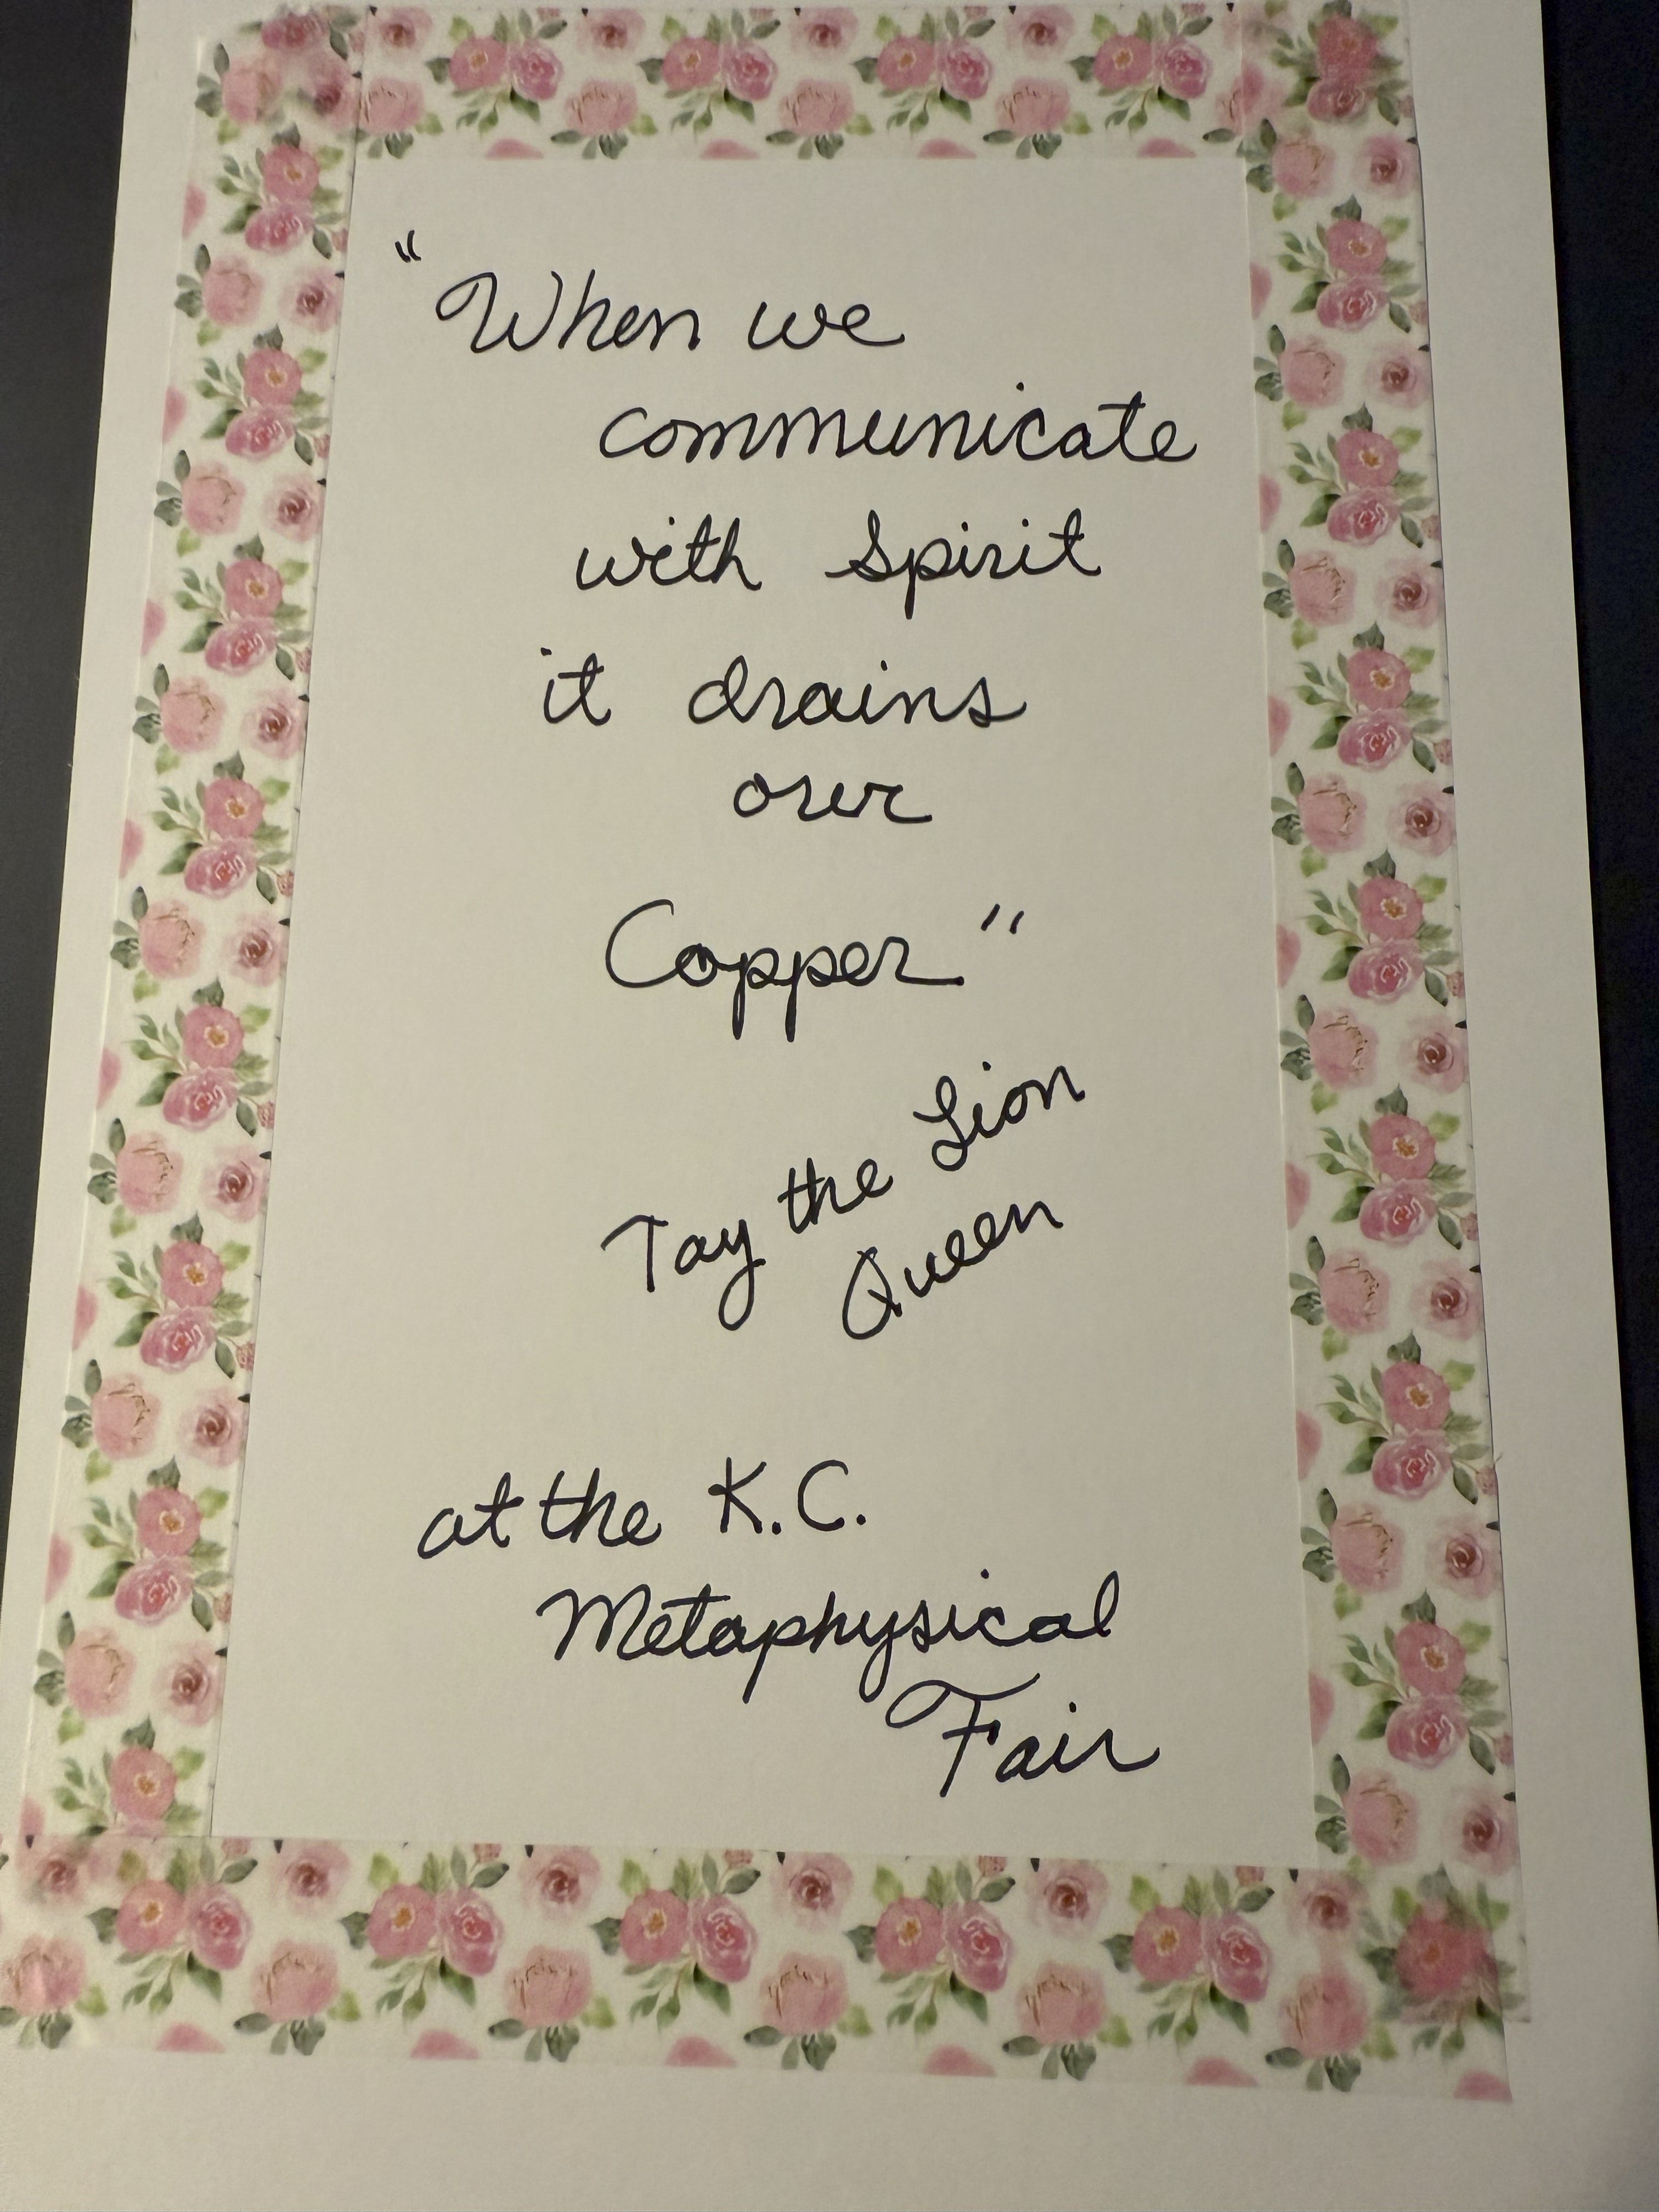 "When we
communicate
with Spirit
it drains
our
Copper"
Tay the Lion
Queen
at the K.C.
Metaphysical
Fair